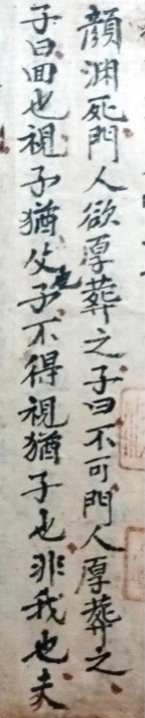 顔渊死門人欲厚葬之子曰不可門人厚葬之
子曰回也視予猶父也予不得視猶子也非我也夫